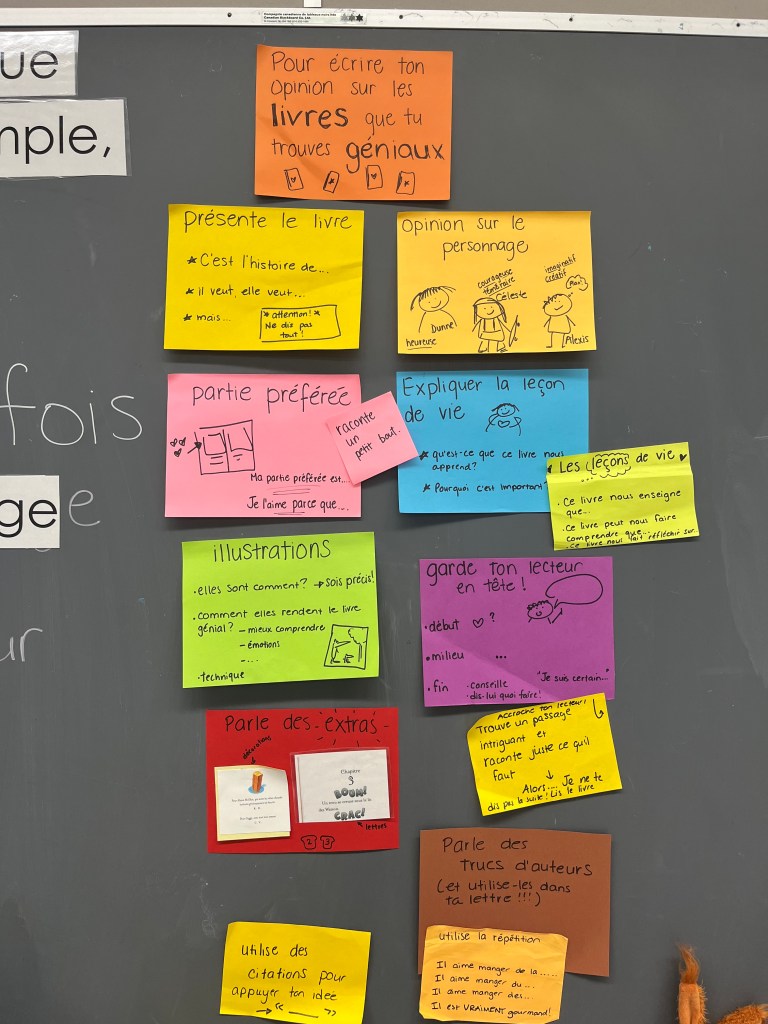 Compagnie canadienne de tableaux noirs ltée
Canadian Blackboard Co. Ltd.
ue
mple,
fois
ge
e
ur
Pour écrire ton
opinion sur les
livres que tu
trouves géniaux
présente le livre
★ C'est l'histoire de...
★ il veut, elle veut...
★ mais...
* attention! *
Ne dis pas
tout!
opinion sur le
personnage
heureuse
Dunne
courageuse
téméraire
Céleste
imaginatif
créatif
Plan!
Alexis
partie préférée
Ma partie préférée est...
Je l'aime parce que...
raconte
un
petit bout.
Expliquer la leçon
de vie
★ qu'est-ce que ce livre nous
apprend?
★ Pourquoi c'est important?
Les leçons de vie
...
• Ce livre nous enseigne
que...
• Ce livre peut nous faire
comprendre que...
• Ce livre nous fait réfléchir sur...
illustrations
• elles sont comment? → sois précis!
• comment elles rendent le livre
génial? – mieux comprendre
– émotions
– ...
• technique
garde ton lecteur
en tête!
• début ?
• milieu ...
• fin
• conseille
• dis-lui quoi faire!
"Je suis certain..."
Accroche ton lecteur!
Trouve un passage
intriguant et
raconte juste ce qu'il
faut
Alors.... Je ne te
dis pas la suite! Lis le livre
Parle des extras
décorations
Chapitre
3
BOOM!
CRAC!
lettres
2 3
Parle des
trucs d'auteurs
(et utilise-les dans
ta lettre !!!)
utilise la répétition
Il aime manger de la .....
Il aime manger du ...
Il aime manger des...
Il est VRAIMENT gourmand!
utilise des
citations pour
appuyer ton idée
→ " ______ "